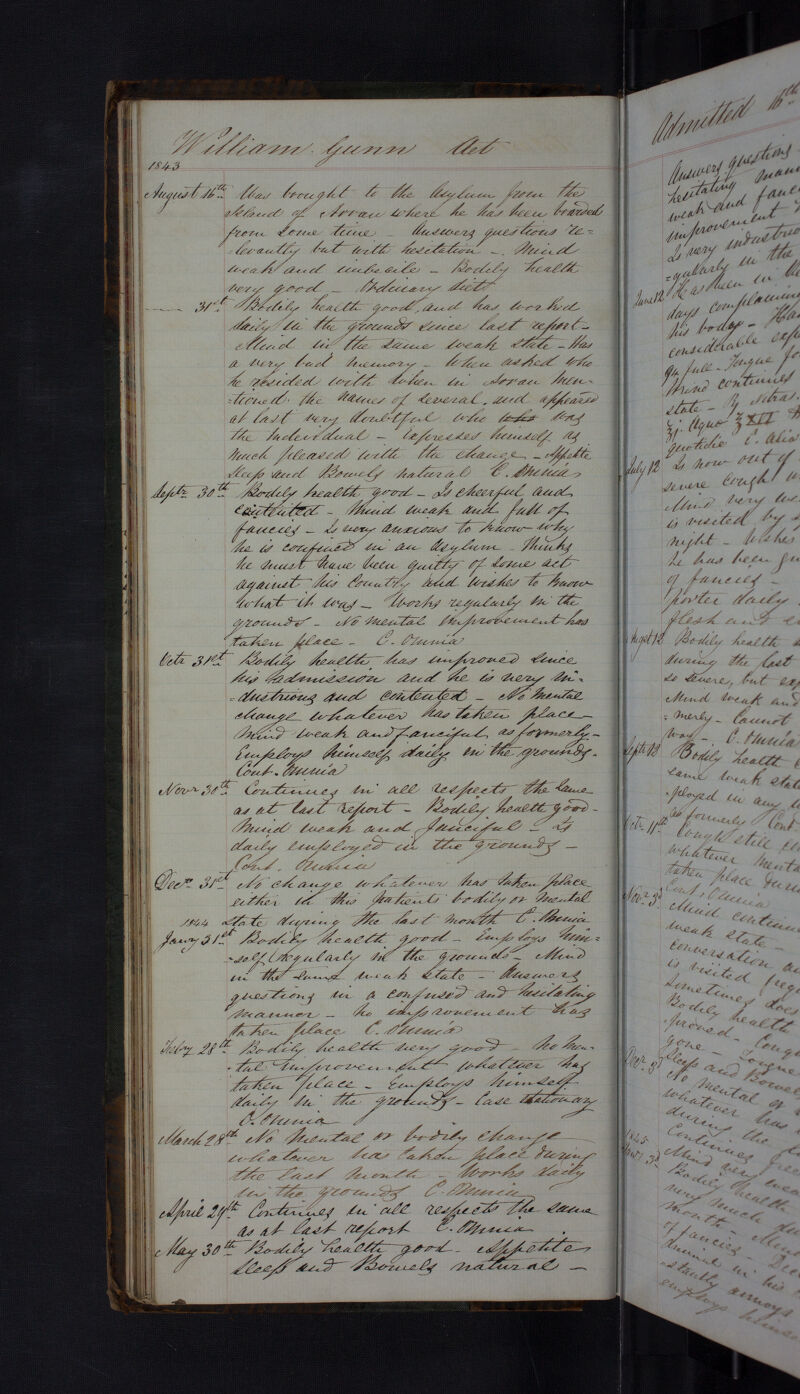 William Gunn Aet
1843
August 16th Was brought to the Asylum from the
Island of Arran where he has been boarded
from some time - Answers questions re=
levantly but with hesitation - Mind
weak and imbecile - Bodily health
very good - Ordinary diet
31st Bodily health good, and has worked
daily in the grounds since last report -
Mind in the same weak state - Has
a very bad memory - When asked who
he resided with when in Arran men-
-tioned the names of several, and appeared
at last very doubtful who who was
the Individual - Expresses himself as
much pleased with the change - Appetite
Sleep and Bowels natural C. Omnia
Septr 30th Bodily health good - Is cheerful and
contented - Mind weak and full of
fancies - Is very anxious to know why
he is confined in an Asylum - Thinks
he must have been guilty of some act
against his Country and wishes to know
what it was - Works regularly in the
grounds - No mental improvement has
taken place - C. Omnia
Octr 31st Bodily health has improved since
his admission and he is very in-
=dustrious and contented - No mental
change whatever has taken place -
Mind weak and fanciful as formerly -
Employs himself daily in the grounds -
Cont. Omnia
Novr 30th Continues in all respects the same
as at last report - Bodily health good -
Mind weak and fanciful - Is
daily employed in the grounds -
Cont. Omnia
Decr 31st No change whatever has taken place
either in this patients bodily or mental
1844 state during the last month C. Omnia
Jany 31st Bodily health good - Employs him=
-self regularly in the grounds - Mind
in the same weak state - Answers
questions in a confused and hesitating
manner - No improvement has
taken place C. Omnia
Feby 28th Bodily health very good - No men-
-tal improvement whatever has
taken place - Employs himself
daily in the grounds - Case stationary
C. Omnia
March 28th No mental or bodily change
whatever has taken place during
the last month - Works daily
in the grounds C. Omnia
April 29th Continues in all respects the same
as at last report C. Omnia
May 30th Bodily health good - Appetite
Sleep and Bowels natural -
Admitted 16th
Answers questions
hesitating
weak and
improvement
Is very
=gularly in the
June 12 Has been in
days complaining
his body -
considerable
full - Tongue
Mind continues
state -
quotidie C. alia
July 12 Is now out of
severe cough
Mind very
is visited by
night - Wishes
he has been
of fancies -
porter daily
flesh and
August 12 Bodily health
during the last
so severe, but
Mind weak and
=merly - Cannot
C. Omnia
Septr 13 Bodily health
same weak state
-ployed in any
as formerly Cont.
Octr 11th Cough still
whatever
taken place
Cont. Omnia
Novr 3d Mind
weak state -
conversation
is visited
Sometimes does
Bodily health
-proved -
gone - Tongue
Sleep and Bowels
Decr 3 No mental or
whatever has
during the
Continues
1845
Mind very
Bodily health
very much
month -
of fancies -
in his
-stantly annoys
employs